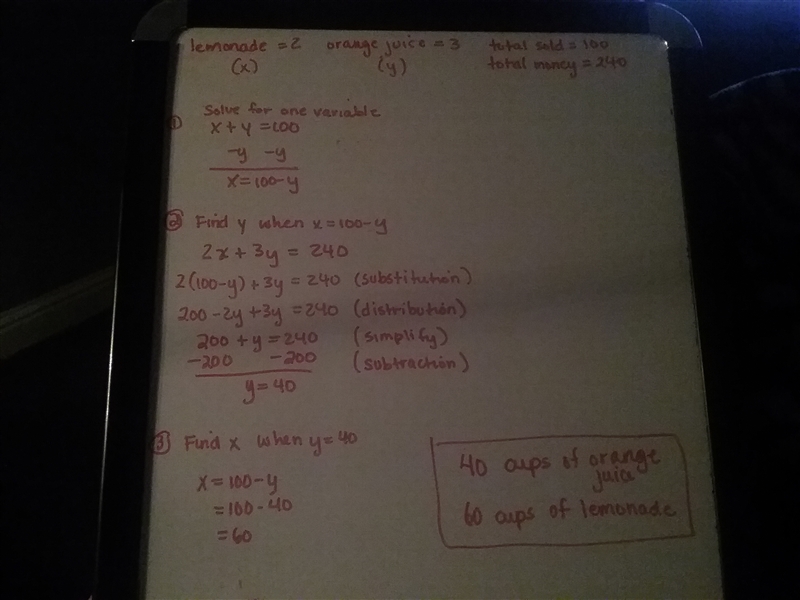 lemonade = 2 orange juice = 3 total sold = 100
(x) (y) total money = 240
① Solve for one variable
x + y = 100
-y -y
x = 100 - y
② Find y when x = 100 - y
2x + 3y = 240
2(100-y) + 3y = 240 (substitution)
200 - 2y + 3y = 240 (distribution)
200 + y = 240 (simplify)
-200 -200 (subtraction)
y = 40
③ Find x when y = 40
x = 100 - y
= 100 - 40
= 60
40 cups of orange
juice
60 cups of lemonade